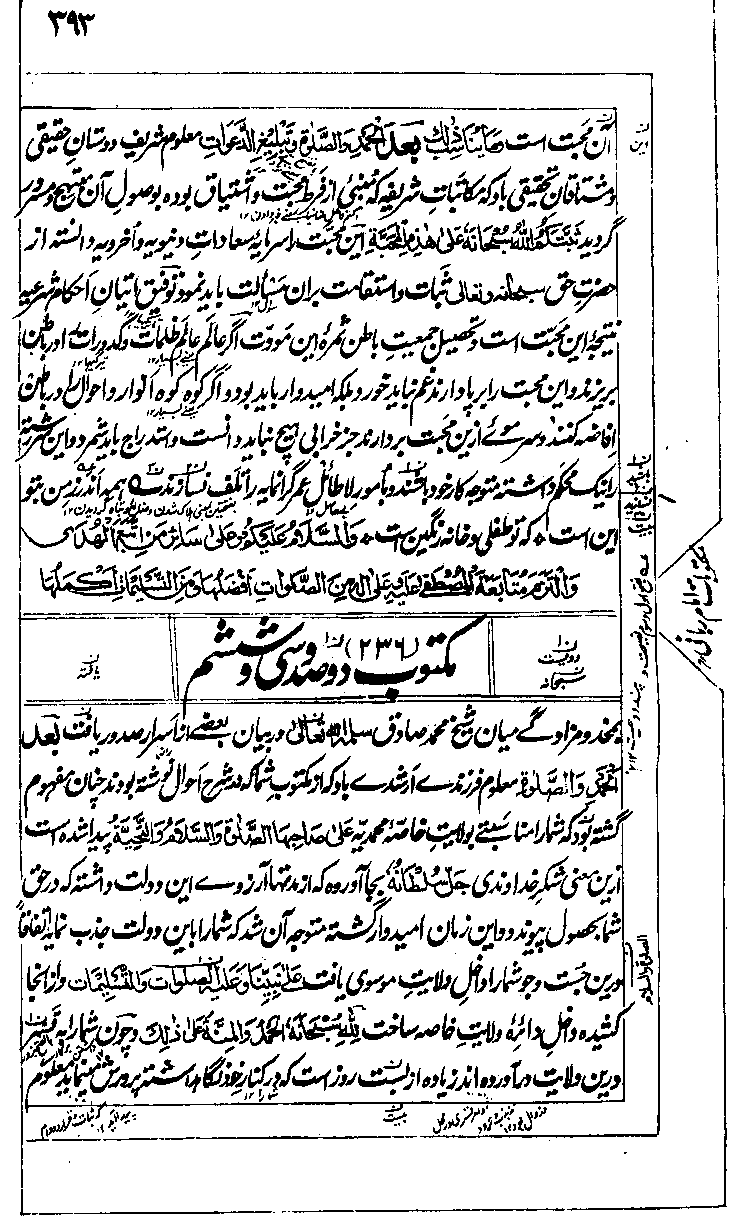 ۳۹۳
آن محبت است وما یناسب ذلک بعد الحمد والصلوة وتبلیغ الدعوات معلوم شریف دوستان حقیقی
ومشتاقان تحقیقی باد که مکاتبات شریفه که منبئ از فرط محبت واشتیاق بوده بوصول آن مبتهج ومسرور
گردید ثبتکم الله سبحانه علی هذه المحبة این محبت را سرمایهٔ سعادات دنیویه واخرویه دانسته از
حضرت حق سبحانه وتعالی ثبات واستقامت بران مسألت باید نمود توفیق اتیان احکام شرعیه
نتیجهٔ این محبت است وتحصیل جمعیت باطن ثمرهٔ این مودت اگر عالم عالم ظلمات وکدورات در باطن
بریزند واین محبت را برپا دارند غم نباید خورد بلکه امیدوار باید بود واگر کوه کوه انوار واحوال را در باطن
افاضه کنند وسر موئے ازین محبت بردارند جز خرابی هیچ نباید دانست واستدراج باید شمرد واین سررشته
را نیک محکم داشته متوجه کار خود باشند وبامور لاطائل عمر گرانمایه را تلف نسازند ه همه اندرز من بتو
این است * که تو طفلی وخانه رنگین است * والسلام علیکم وعلی سائر من اتبع الهدی
والتزم متابعة المصطفی علیه وعلی آله من الصلوات افضلها ومن التسلیمات اکملها
مکتوب (۲۳۶) دو صد وسی وششم
ن۱ دویست
سبحانه
بمخدومزادگے میان شیخ محمد صادق سلمه الله تعالی در بیان بعضے از اسرار صدور یافت بعد
الحمد والصلوة معلوم فرزندے ارشدے باد که از مکتوب شما که در شرح احوال نوشته بودند چنان مفهوم
گشته بود که شما را مناسبتے بولایت خاصه محمدیه علی صاحبها الصلوة والسلام والتحیة پیدا شده است
ازین معنی شکر خداوندی جل سلطانه بجا آورده که از مدتها آرزوے این دولت داشته که در حق
شما بحصول پیوندد واین زمان امیدوار گشته متوجه آن شد که شما را باین دولت جذب نماید اتفاقاً
درین جست وجو شما را داخل ولایت موسوی یافت علی نبینا وعلیه الصلوات والتسلیمات واز انجا
کشیده داخل دائرهٔ ولایت خاصه ساخت لله سبحانه الحمد والمنة علی ذلک وچون شما را به قسر
درین ولایت درآورده اند زیاده از بست روز است که در کنار خود نگاه داشته پرورش مینماید معلوم
مکتوبات امام ربانی رح
الصلوة والسلام
بیست